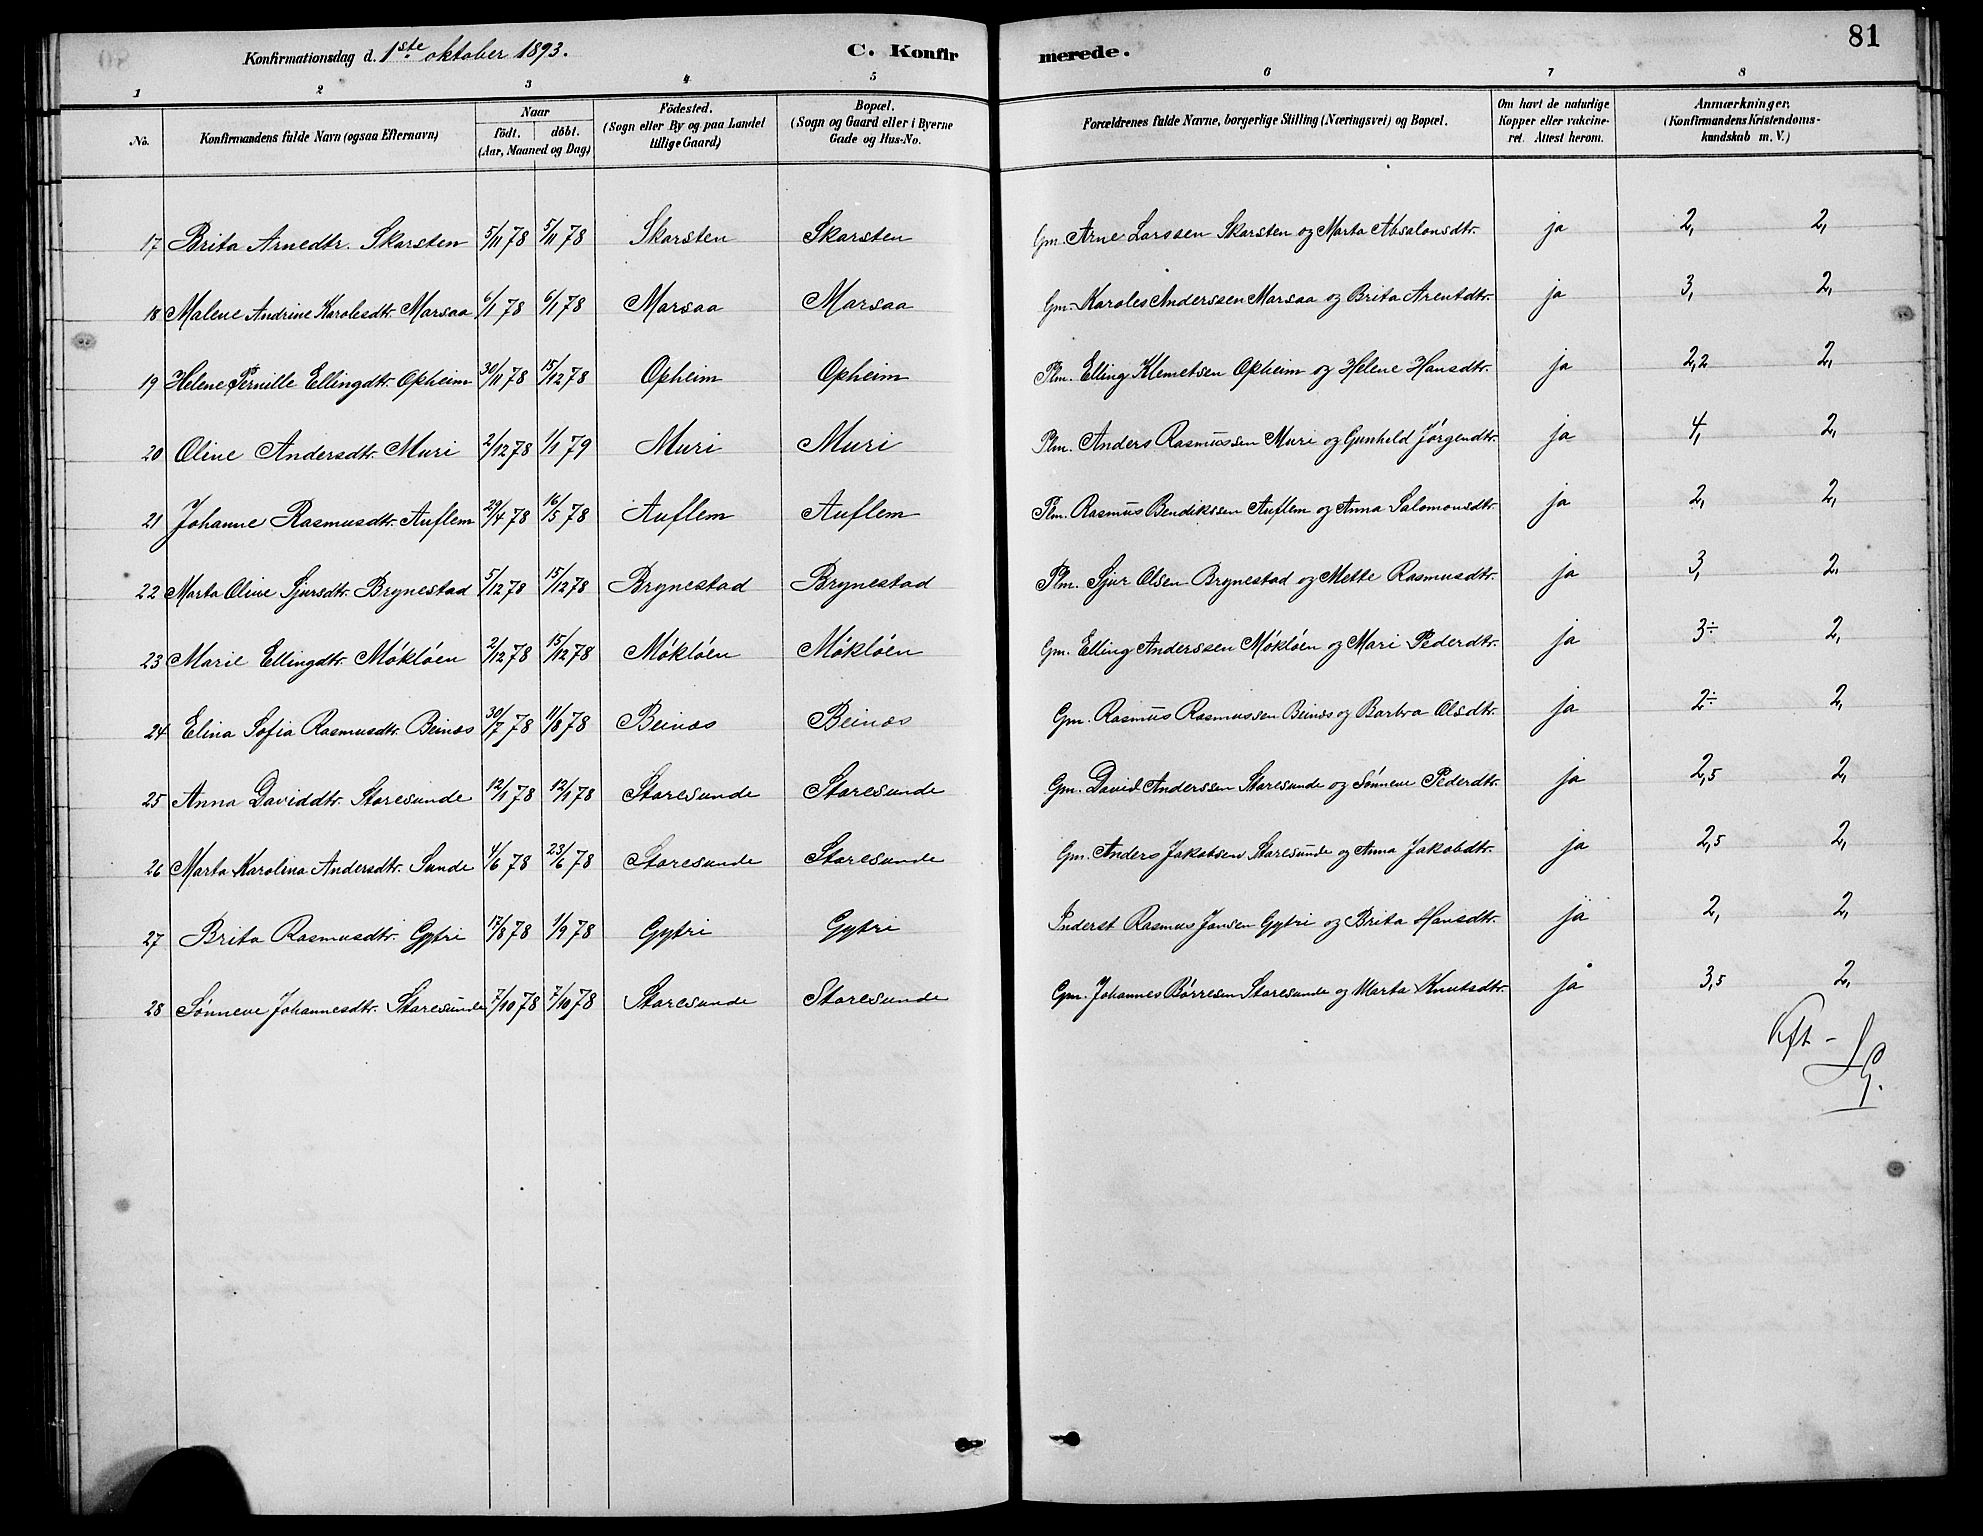 Konfirmationsdag d. 1ste oktober 1893.
C. Konfirmerede.
81
1 2 3 4 5 6 7 8
No.
Konfirmandens fulde Navn (ogsaa Efternavn)
Naar
födt. döbt.
(Aar, Maaned og Dag)
Födested.
(Sogn eller By og paa Landet
tillige Gaard)
Bopæl.
(Sogn og Gaard eller i Byerne
Gade og Hus-No.
Forældrenes fulde Navne, borgerlige Stilling (Næringsvei) og Bopæl.
Om havt de naturlige
Kopper eller vakcine-
ret. Attest herom.
Anmærkninger.
(Konfirmandens Kristendoms-
kundskab m. V.)
17 Brita Arnedtr. Skarsten 5/11 78 5/11 78 Skarsten Skarsten Gm. Arne Larssen Skarsten og Marta Absalonsdtr. ja 2, 2,
18 Malene Andrine Karolesdtr. Marsaa 6/1 78 6/1 78 Marsaa Marsaa Gm. Karoles Anderssen Marsaa og Brita Arentdtr. ja 3, 2,
19 Helene Pernille Ellingdtr. Opheim 30/11 78 15/12 78 Opheim Opheim Plm. Elling Klemetsen Opheim og Helene Hansdtr. ja 2,2 2,
20 Oline Andersdtr. Muri 2/12 78 1/1 79 Muri Muri Plm. Anders Rasmussen Muri og Gunhild Jørgendtr. ja 4, 2,
21 Johanne Rasmusdtr. Auflem 29/4 78 16/5 78 Auflem Auflem Plm. Rasmus Bendikssen Auflem og Anna Salomonsdtr. ja 2, 2,
22 Marta Oline Sjursdtr. Brynestad 5/12 78 15/12 78 Brynestad Brynestad Plm. Sjur Olsen Brynestad og Mette Rasmusdtr. ja 3, 2,
23 Marie Ellingdtr. Mókløen 2/12 78 15/12 78 Mókløen Mókløen Gm. Elling Anderssen Mókløen og Mari Pederdtr. ja 3÷ 2,
24 Elina Sofia Rasmusdtr. Beinæs 30/7 78 11/8 78 Beinæs Beinæs Gm. Rasmus Rasmussen Beinæs og Barbra Olsdtr. ja 2÷ 2,
25 Anna Daviddtr. Storesunde 12/1 78 12/1 78 Storesunde Storesunde Gm. David Anderssen Storesunde og Sónneve Pederdtr. ja 2,5 2,
26 Marta Karolina Andersdtr. Sunde 4/6 78 23/6 78 Storesunde Storesunde Gm. Anders Jakobsen Storesunde og Anna Jakobdtr. ja 2,5 2,
27 Brita Rasmusdtr. Gytri 17/8 78 1/9 78 Gytri Gytri Inderst Rasmus Jansen Gytri og Brita Hansdtr. ja 2, 2,
28 Sónneve Johannesdtr. Storesunde 7/10 78 7/10 78 Storesunde Storesunde Gm. Johannes Børresen Storesunde og Marta Knutsdtr. ja 3,5 2,